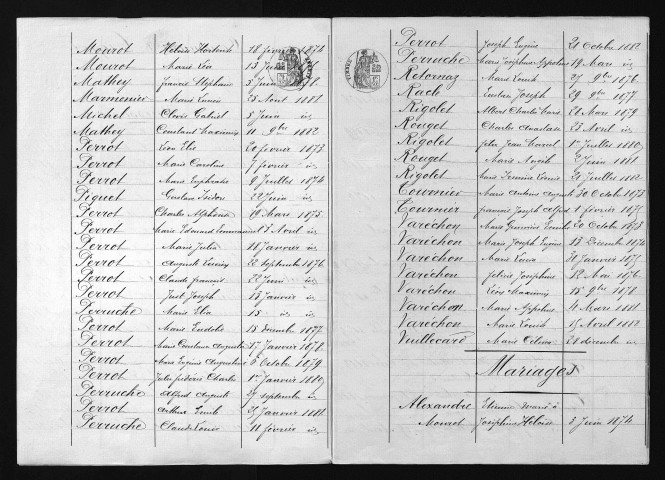 Mourot Héloïse Hortense 18 février 1874
Mourot Marie Léa 13
Mathey Francis Stéphane 5 Juin
Marmonier Marie 25 Août 1881
Michel Clovis Gabriel 5 Juin id
Mathey Constant Maximin 11 9bre 1882
Perrot Léon Elie 20 février 1873
Perrot Marie Caroline 7 février id
Perrot Marie Euphrasie 9 Juillet 1874
Piguet Gustave Isidore 22 Juin id
Perrot Charles Alphonse 19 Mars 1875
Perrot Marie Edouard Emmanuel 3 Avril id
Perrot Marie Julia 11 Janvier id
Perrot Auguste 22 Septembre 1876
Perrot Claude françois 22 Juin id
Perrot Just Joseph 13 Janvier id
Perruche Marie Elia 15 id id
Perrot Marie Eudolie 15 décembre 1877
Perrot Marie Constance Augusta 17 Janvier 1878
Perrot Marie Eugénie Augustine 5 Octobre 1879
Perrot Jules frédéric Charles 1er Janvier 1880
Perruche Alfred Auguste 29 septembre id
Perrot Arthur Emile 29 Janvier 1881
Perruche Claude Louis 11 février id
Perrot Joseph Eugène 21 Octobre 1882
Perruche Marie Joséphine Zépoline 19 Mars id
Retornaz Marie Louise 27 9bre 1876
Rach Gustave Joseph 29 9bre 1877
Rigolet Albert Charles 21 Mars 1879
Rouget Charles Anastase 23 Avril id
Rigolet Jules Jean Marcel 1er Juillet 1880
Rouget Marie 2 Juin 1881
Rigolet Marie Louise 21 Juillet 1882
Tournier Marie Antoine Auguste 30 Octobre 1873
Tournier françois Joseph Alfred 1 février 1875
Varéchon Marie Emile 20 Octobre 1873
Varéchon Marie Joseph Eugène 13 Décembre 1874
Varéchon Marie 31 Janvier 1875
Varéchon Félicie Joséphine 12 Mai 1876
Varéchon Léon Maximin 15 9bre 1878
Varéchon Marie 4 Mars 1881
Varéchon Marie Louise 15 Avril 1882
Vuittecard Marie Célina 21 décembre id
Mariages
Alexandre Etienne Marie à
Mourot Joséphine Héloïse 3 Juin 1874